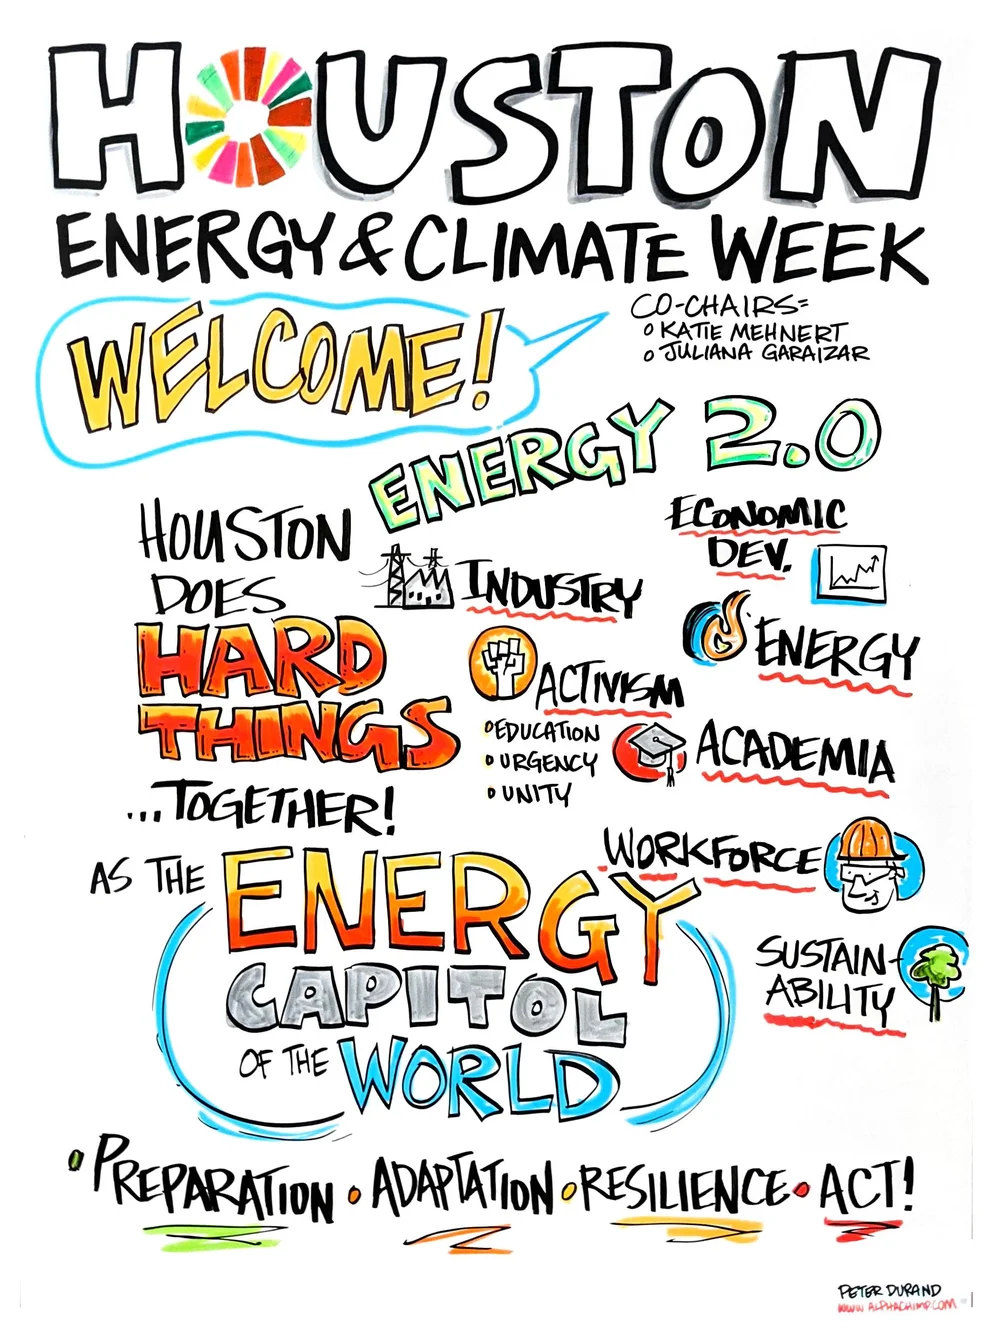 HOUSTON
ENERGY & CLIMATE WEEK
WELCOME!
CO-CHAIRS=
KATIE MEHNERT
JULIANA GARAIZAR
ENERGY 2.0
HOUSTON
DOES
HARD
THINGS
...TOGETHER!
AS THE ENERGY
CAPITOL
OF THE WORLD
INDUSTRY
ECONOMIC
DEV.
ENERGY
ACTIVISM
• EDUCATION
• URGENCY
• UNITY
ACADEMIA
WORKFORCE
SUSTAIN-
ABILITY
• PREPARATION • ADAPTATION • RESILIENCE • ACT!
PETER DURAND
WWW.ALPHACHIMP.COM